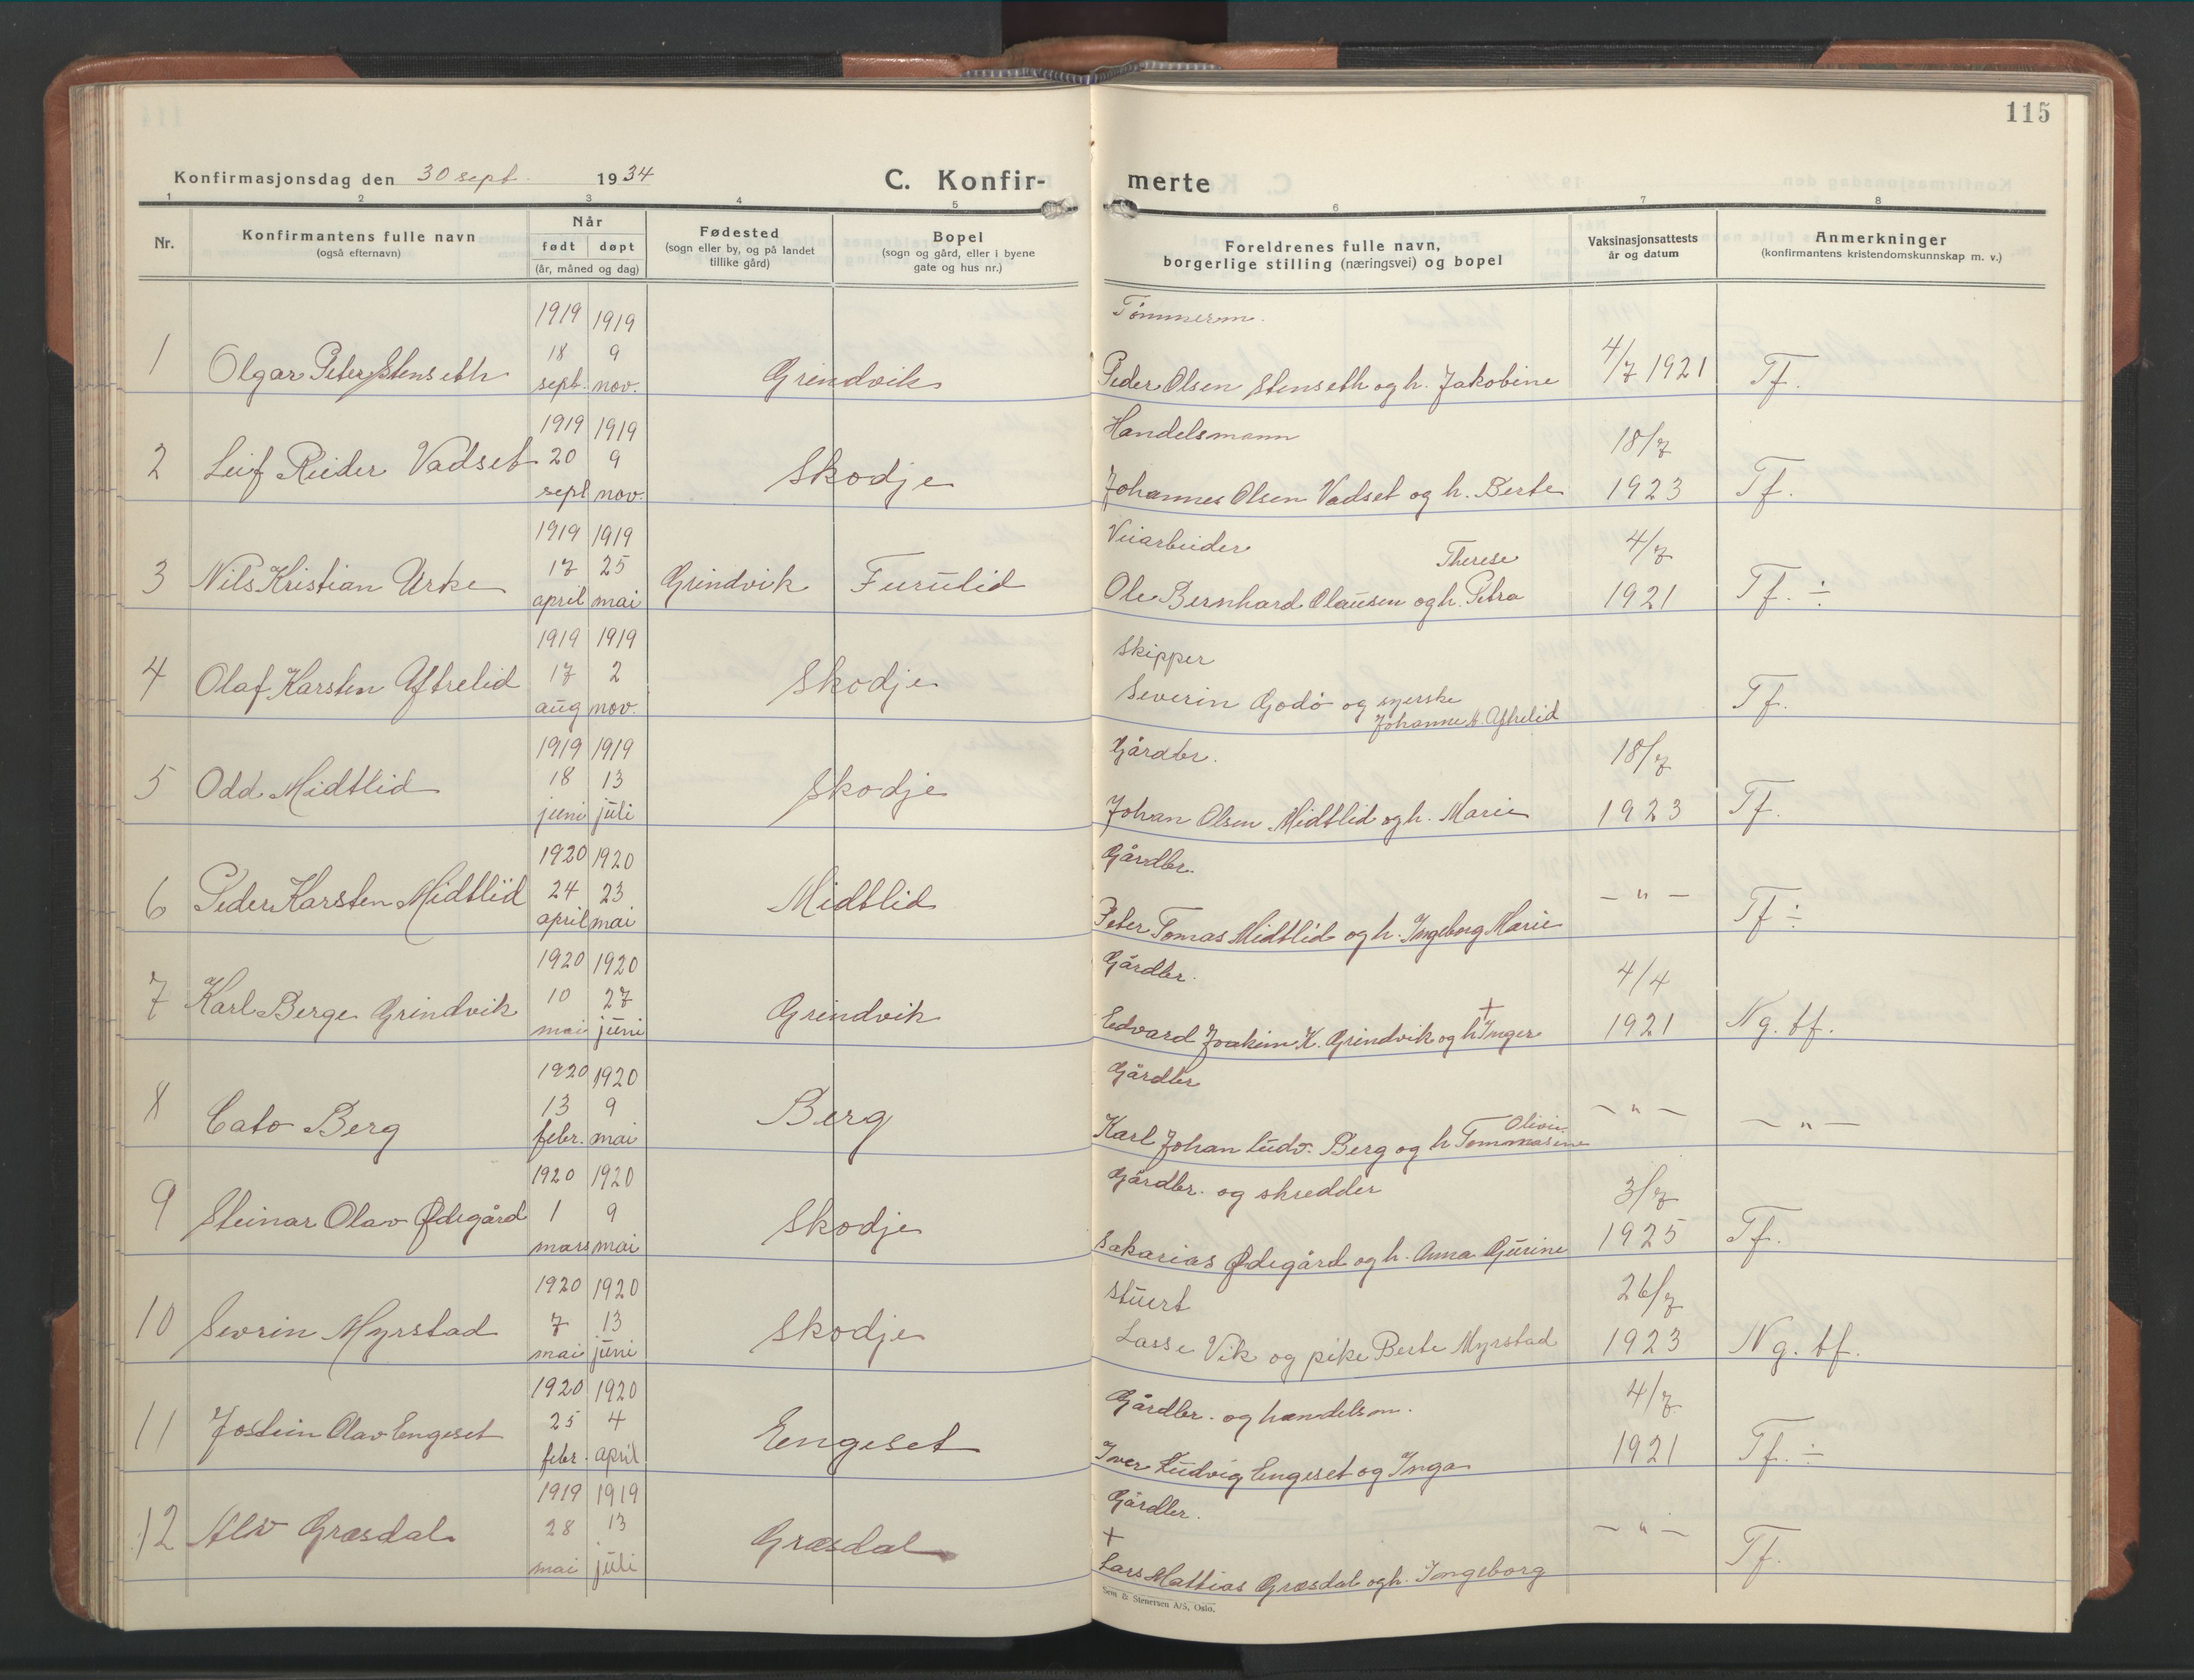 115
Konfirmasjonsdag den 30 sept. 1934
C. Konfir-
merte
1 2 3 4 5 6 7 8
Nr.
Konfirmantens fulle navn
(også efternavn)
Når
født døpt
(år, måned og dag)
Fødested
(sogn eller by, og på landet
tillike gård)
Bopel
(sogn og gård, eller i byene
gate og hus nr.)
Foreldrenes fulle navn,
borgerlige stilling (næringsvei) og bopel
Vaksinasjonsattests
år og datum
Anmerkninger
(konfirmantens kristendomskunnskap m. v.)
1919 1919 Tömmerm.
1 Olgar Peter Stenseth 18 9 Grindvik Peder Olsen Stenseth og h. Jakobine 4/7 1921 Tf.
sept. nov.
1919 1919 Handelsmann 18/7
2 Leif Reidar Vadset 20 9 Skodje Johannes Olsen Vadset og h. Berte 1923 Tf.
sept nov.
1919 1919 Veiarbeider Therese 4/7
3 Nils Kristian Urke 17 25 Grindvik Furulid Ole Bernhard Olausen og h. Petra 1921 Tf. ÷
april mai
1919 1919 Skipper
4 Olaf Karsten Aftrelid 17 2 Skodje Severin Godö og syerske Tf.
aug nov. Johanne A. Aftrelid
1919 1919 Gårdbr. 18/7
5 Odd Midtlid 18 13 Skodje Johan Olsen Midtlid og h. Marie 1923 Tf.
juni juli
1920 1920 Gårdbr.
6 Peder Karsten Midtlid 24 23 Midtlid Peter Tomas Midtlid og h. Ingeborg Marie — " — Tf ÷
april mai
1920 1920 Gårdbr. 4/4
7 Karl Berge Grindvik 10 27 Grindvik Edvard Joakim K. Grindvik og h + Inger 1921 Ng. tf.
mai juni
1920 1920 Gårdbr
8 Cato Berg 13 9 Berg Karl Johan Ludv. Berg og h Tommasine Olivia — " — — " —
febr. mai
1920 1920 Gårdbr. og skredder 3/7
9 Steinar Olav Ødegård 1 9 Skodje Sakarias Ødegård og h. Anna Gurine 1925 Tf.
mars mai
1920 1920 Stuert 26/7
10 Sevrin Myrstad 7 13 Skodje Lasse Vik og pike Berte Myrstad 1923 Ng. tf.
mai juni
1920 1920 Gårdbr. og handelsm. 4/7
11 Jostein Olav Engeset 25 4 Engeset Iver Ludvig Engeset og Inga 1921 Tf. ÷
febr. april
1919 1919 Gårdbr.
12 Alv Græsdal 28 13 Græsdal + Lars Mattias Græsdal og h. Ingeborg — " — Tf.
mai juli
Sem & Stenersen A/S, Oslo.